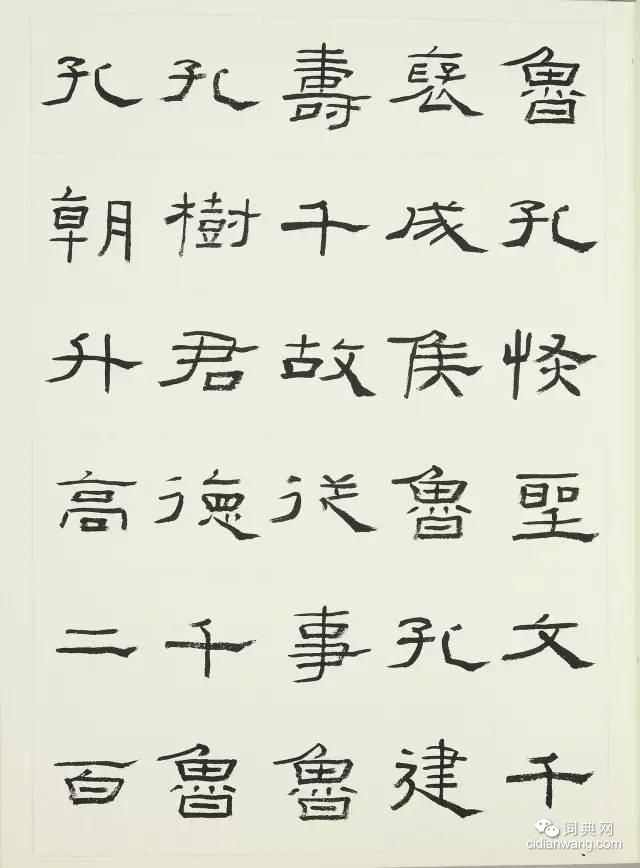 魯孔恢聖文千
褒成侯魯孔建
壽千故從事魯
孔樹君德千魯
孔朝升高二百
词典网
cidianwang.com